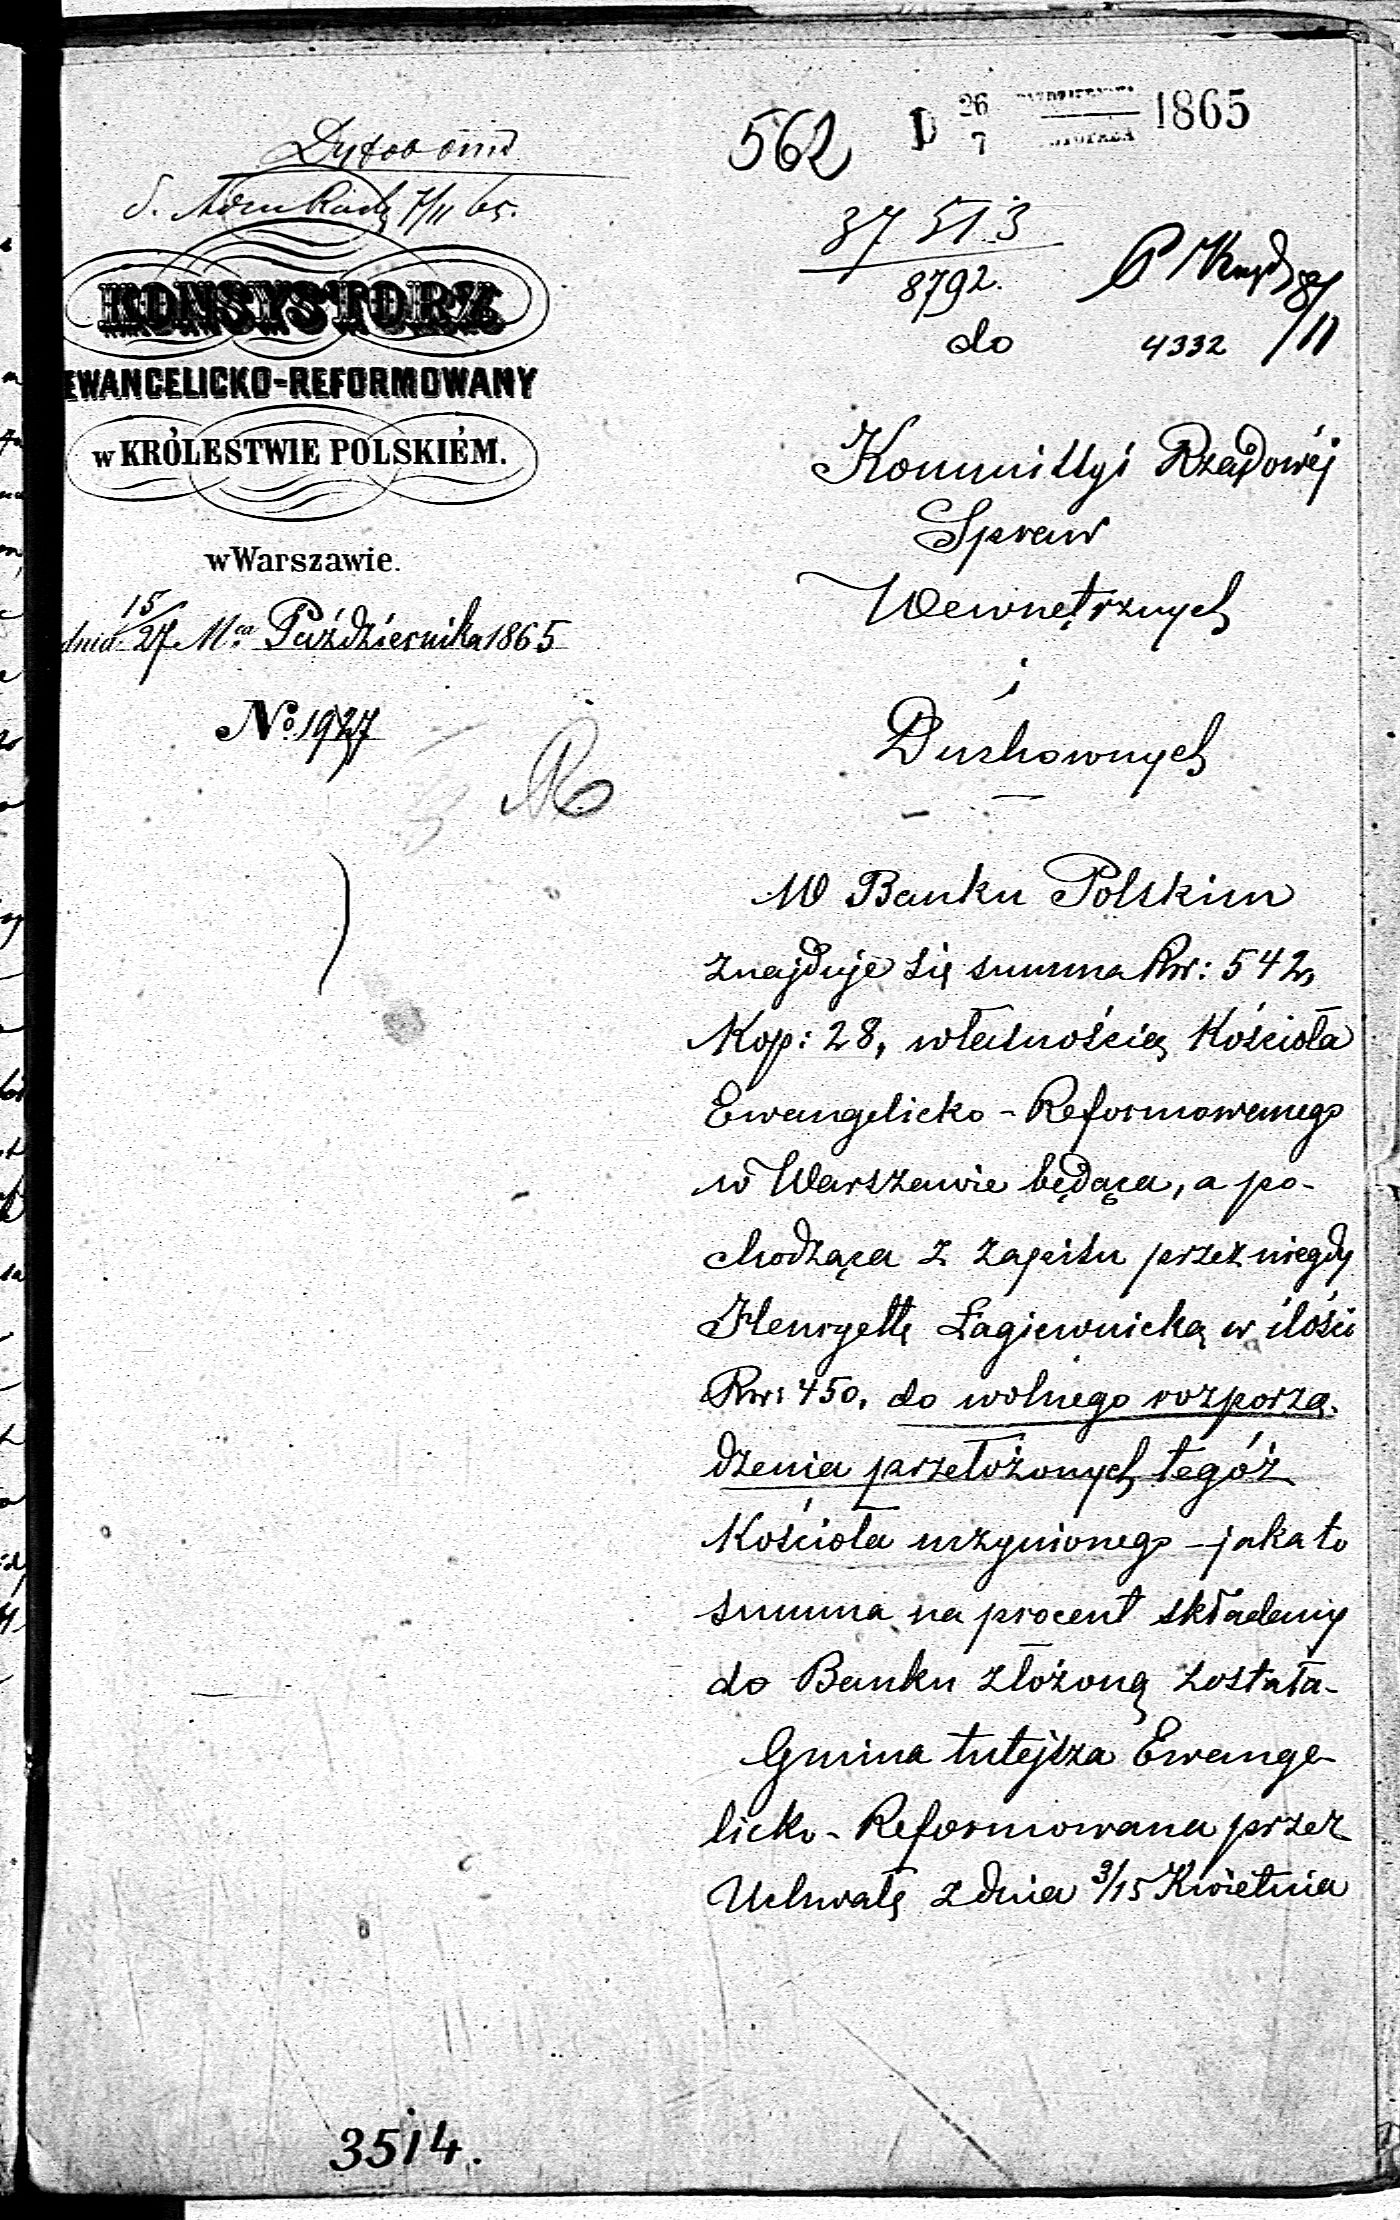 562
D 26/7 PAŹDZIERNIKA/LISTOPADA 1865
7/11 65.
37513
8792.
8/11
do
4332
KONSYSTORZ
EWANGELICKO-REFORMOWANY
w KRÓLESTWIE POLSKIÉM.
w Warszawie.
dnia 15/27 Mca Października 1865
No. 1927
Kommissyi Rządowéj
Spraw
Wewnętrznych
i
Duchownych
W Banku Polskim
znajduje się summa Rsr: 542,
Kop: 28, własnością Kościoła
Ewangelicko-Reformowanego
w Warszawie będąca, a po-
chodząca z zapisu przez niegdy
Henryettę Łagiewnicką w ilości
Rsr: 450, do wolnego rozporzą-
dzenia przełożonych tegóż
Kościoła uczynionego - jaka to
summa na procent składany
do Banku złożoną została -
Gmina tutejsza Ewange-
licko-Reformowana przez
Uchwałę z dnia 3/15 Kwietnia
3514.